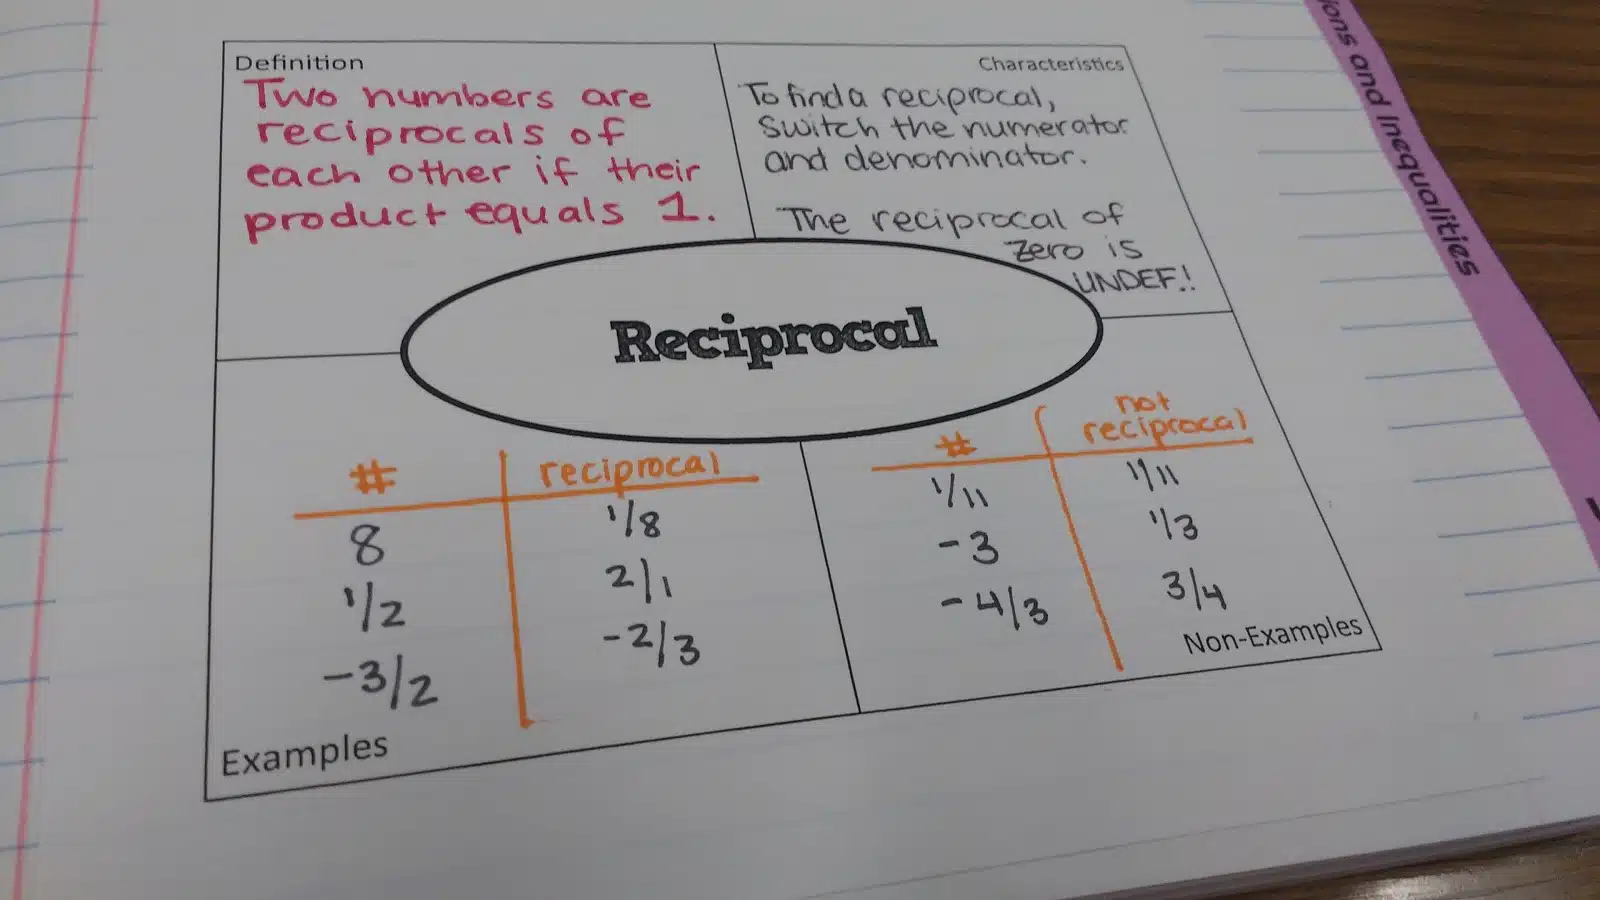 Definition
Two numbers are
reciprocals of
each other if their
product equals 1.
Characteristics
To find a reciprocal,
switch the numerator
and denominator.
The reciprocal of
zero is
UNDEF!!
Reciprocal
# reciprocal
8 1/8
1/2 2/1
-3/2 -2/3
Examples
# not
reciprocal
1/11 1/11
-3 1/3
-4/3 3/4
Non-Examples
and Inequalities